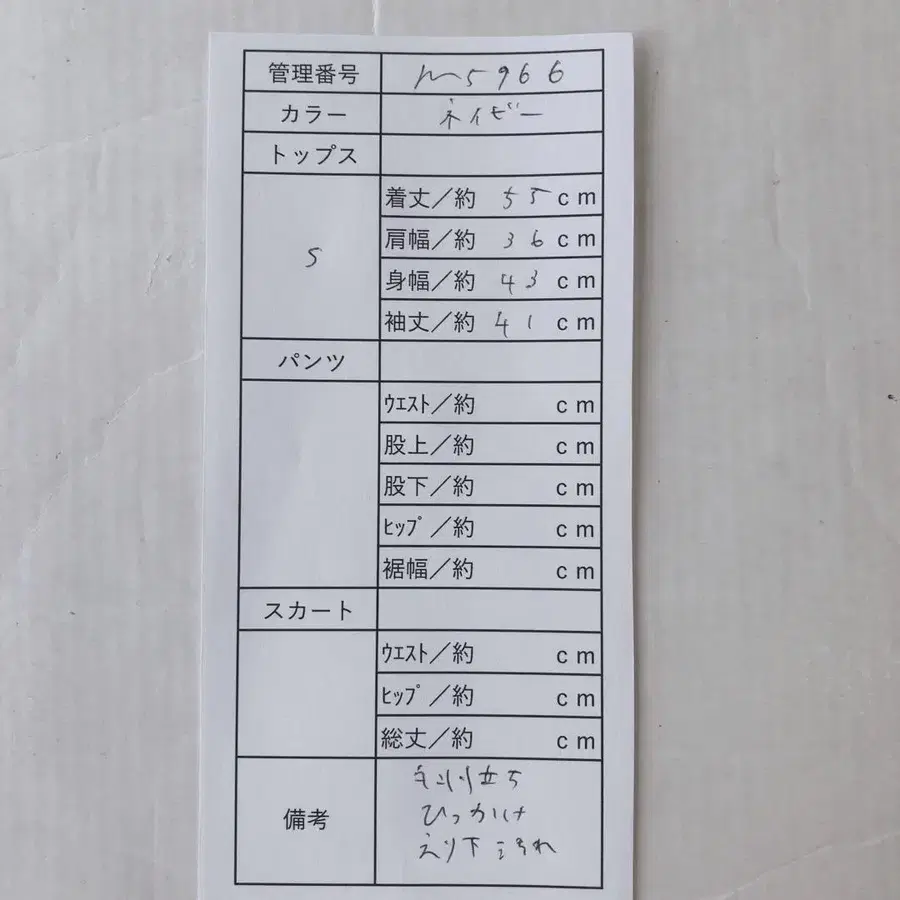 管理番号 m5966
カラー ネイビー
トップス
S
着丈／約 55 cm
肩幅／約 36 cm
身幅／約 43 cm
袖丈／約 41 cm
パンツ
ｳｴｽﾄ／約 cm
股上／約 cm
股下／約 cm
ﾋｯﾌﾟ／約 cm
裾幅／約 cm
スカート
ｳｴｽﾄ／約 cm
ﾋｯﾌﾟ／約 cm
総丈／約 cm
備考
毛羽立ち
ひっかけ
えり下汚れ